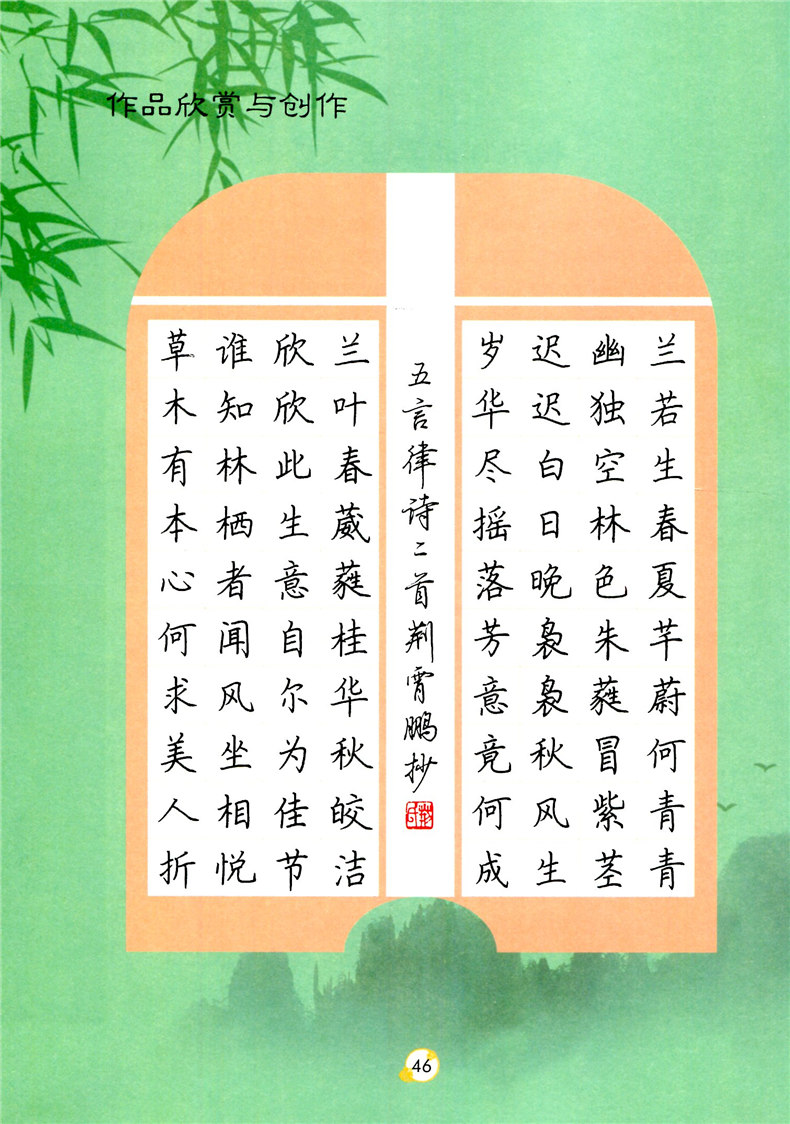 作品欣赏与创作
兰若生春夏芊蔚何青青
幽独空林色朱蕤冒紫茎
迟迟白日晚袅袅秋风生
岁华尽摇落芳意竟何成
五言律诗二首荆霄鹏抄
兰叶春葳蕤桂华秋皎洁
欣欣此生意自尔为佳节
谁知林栖者闻风坐相悦
草木有本心何求美人折
46